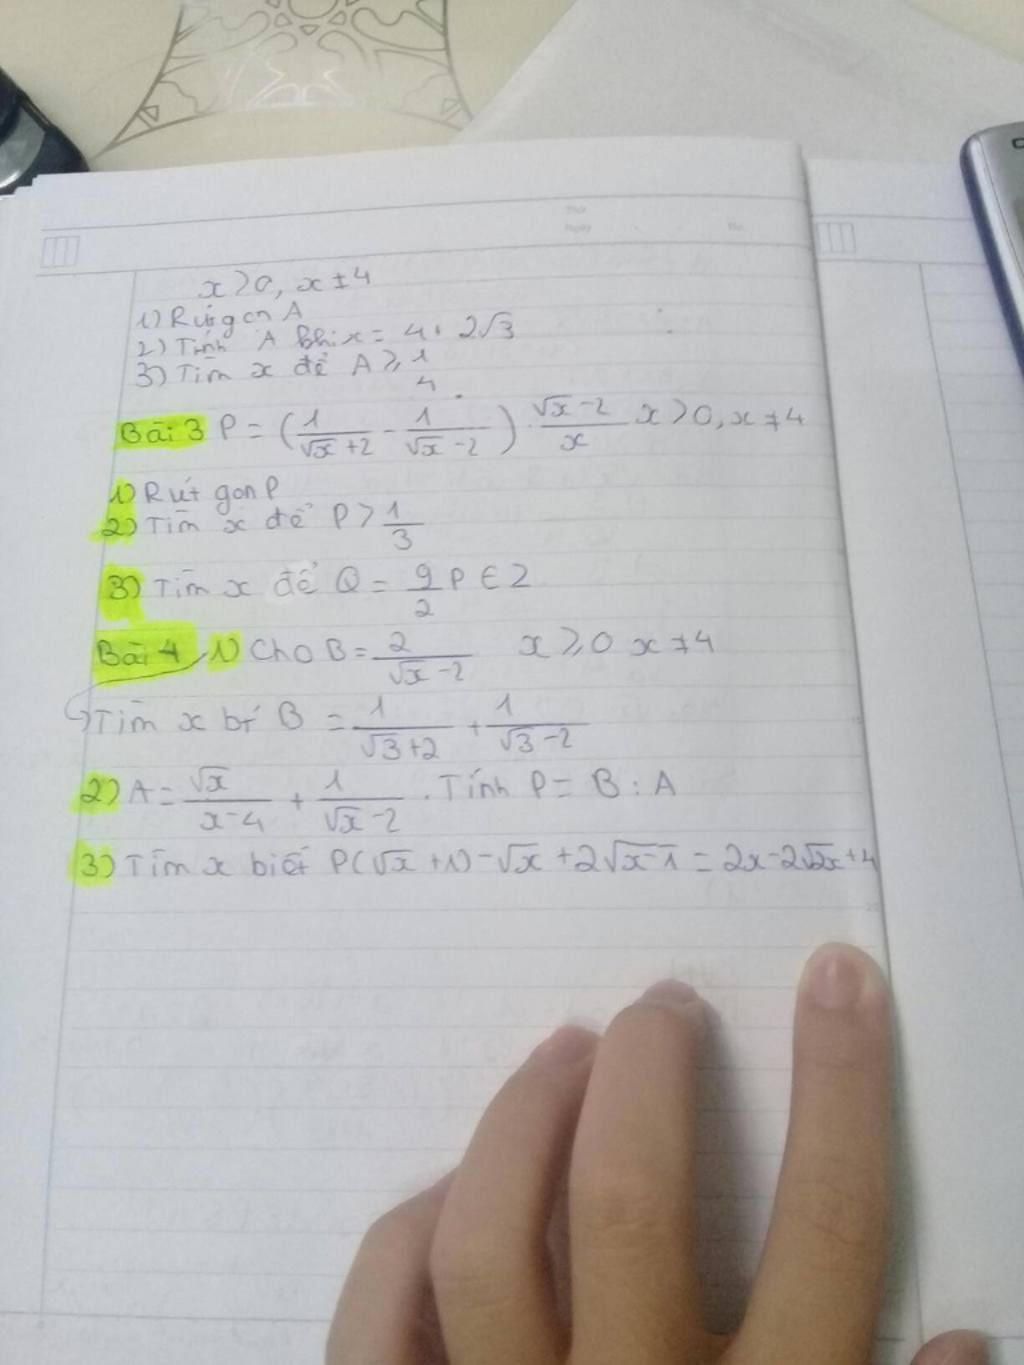 x > 0, x ≠ 4
1) Rút gọn A
2) Tính A khi x = 4 + 2√3
3) Tìm x để A ≥ 1/4
Bài 3 P = (1/(√x + 2) - 1/(√x - 2)) · (√x - 2)/x x > 0, x ≠ 4
1) Rút gọn P
2) Tìm x để P > 1/3
3) Tìm x để Q = 9/2 P ∈ Z
Bài 4 1) Cho B = 2/(√x - 2) x ≥ 0 x ≠ 4
Tìm x bí B = 1/(√3 + 2) + 1/(√3 - 2)
2) A = √x/(x - 4) + 1/(√x - 2). Tính P = B : A
3) Tìm x biết P(√x + 1) - √x + 2√(x - 1) = 2x - 2√2x + 4